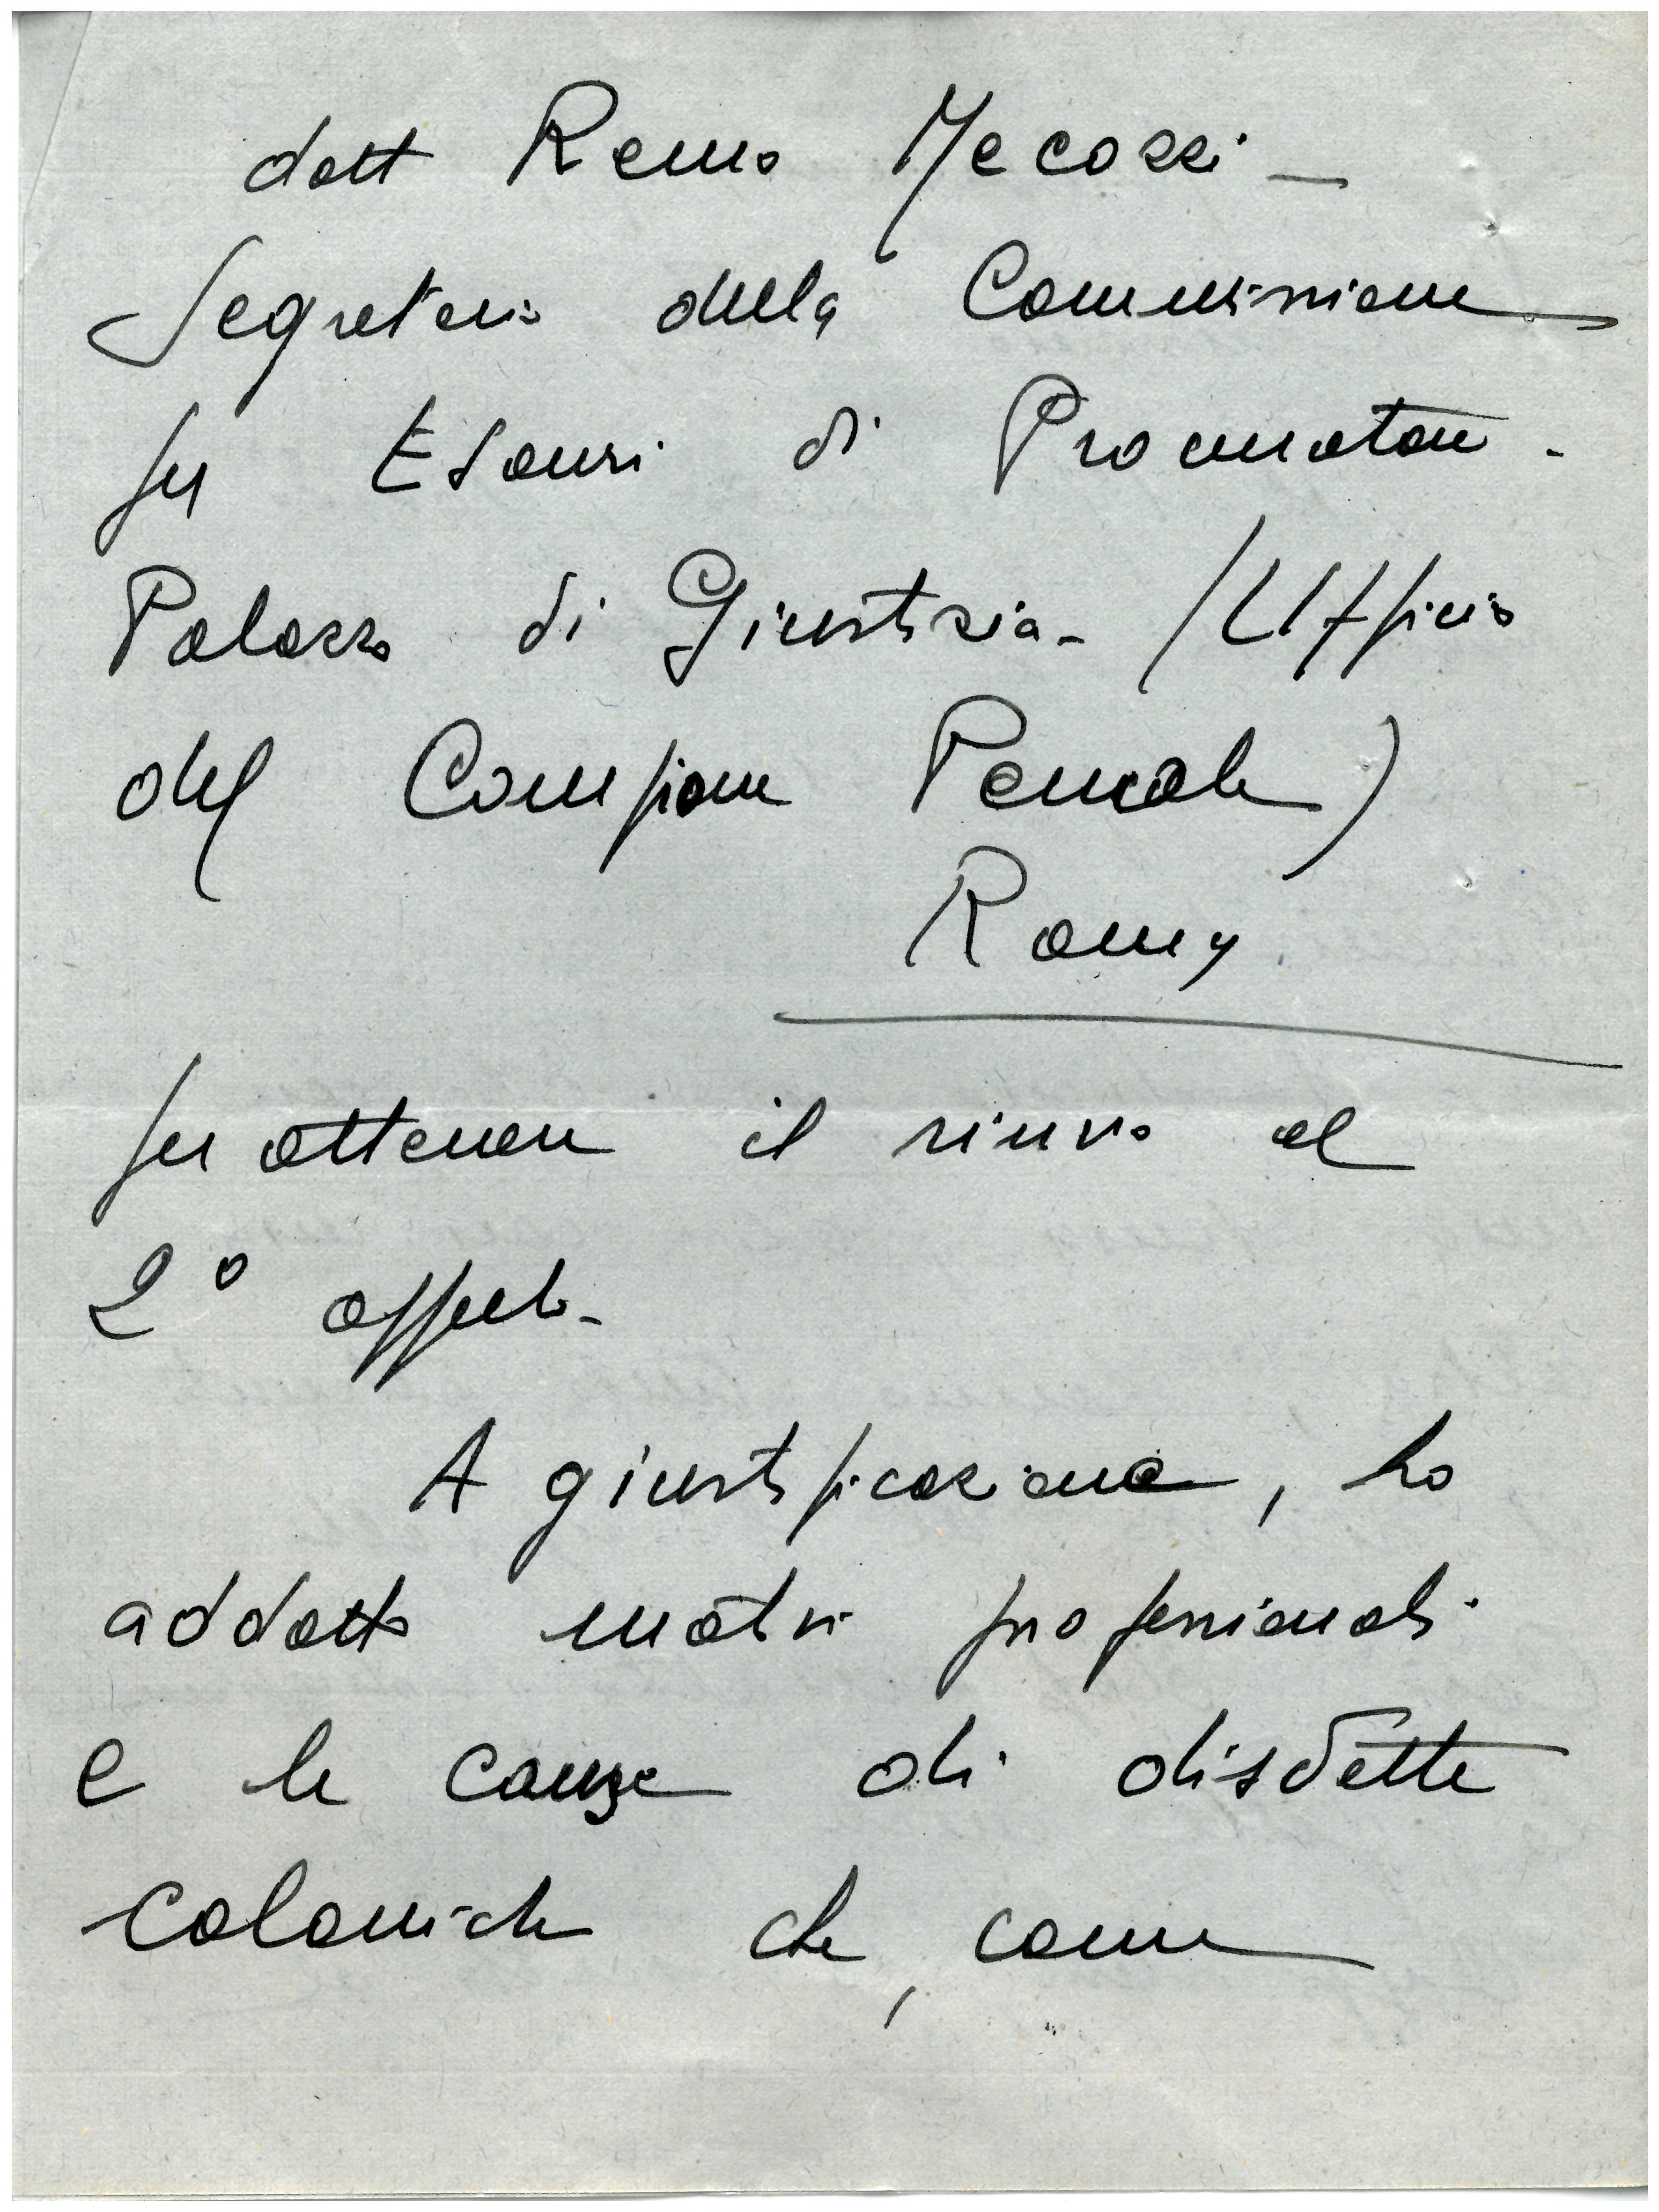 dott Remo Mecozzi -
Segretario della Commissione
per Esami di Procuratore -
Palazzo di Giustizia - (Ufficio
del Campione Penale)
Roma
per ottenere il rinvio al
2° appello -
A giustificazione, ho
addotto motivi professionali
e le cause di disdette
coloniche che, come